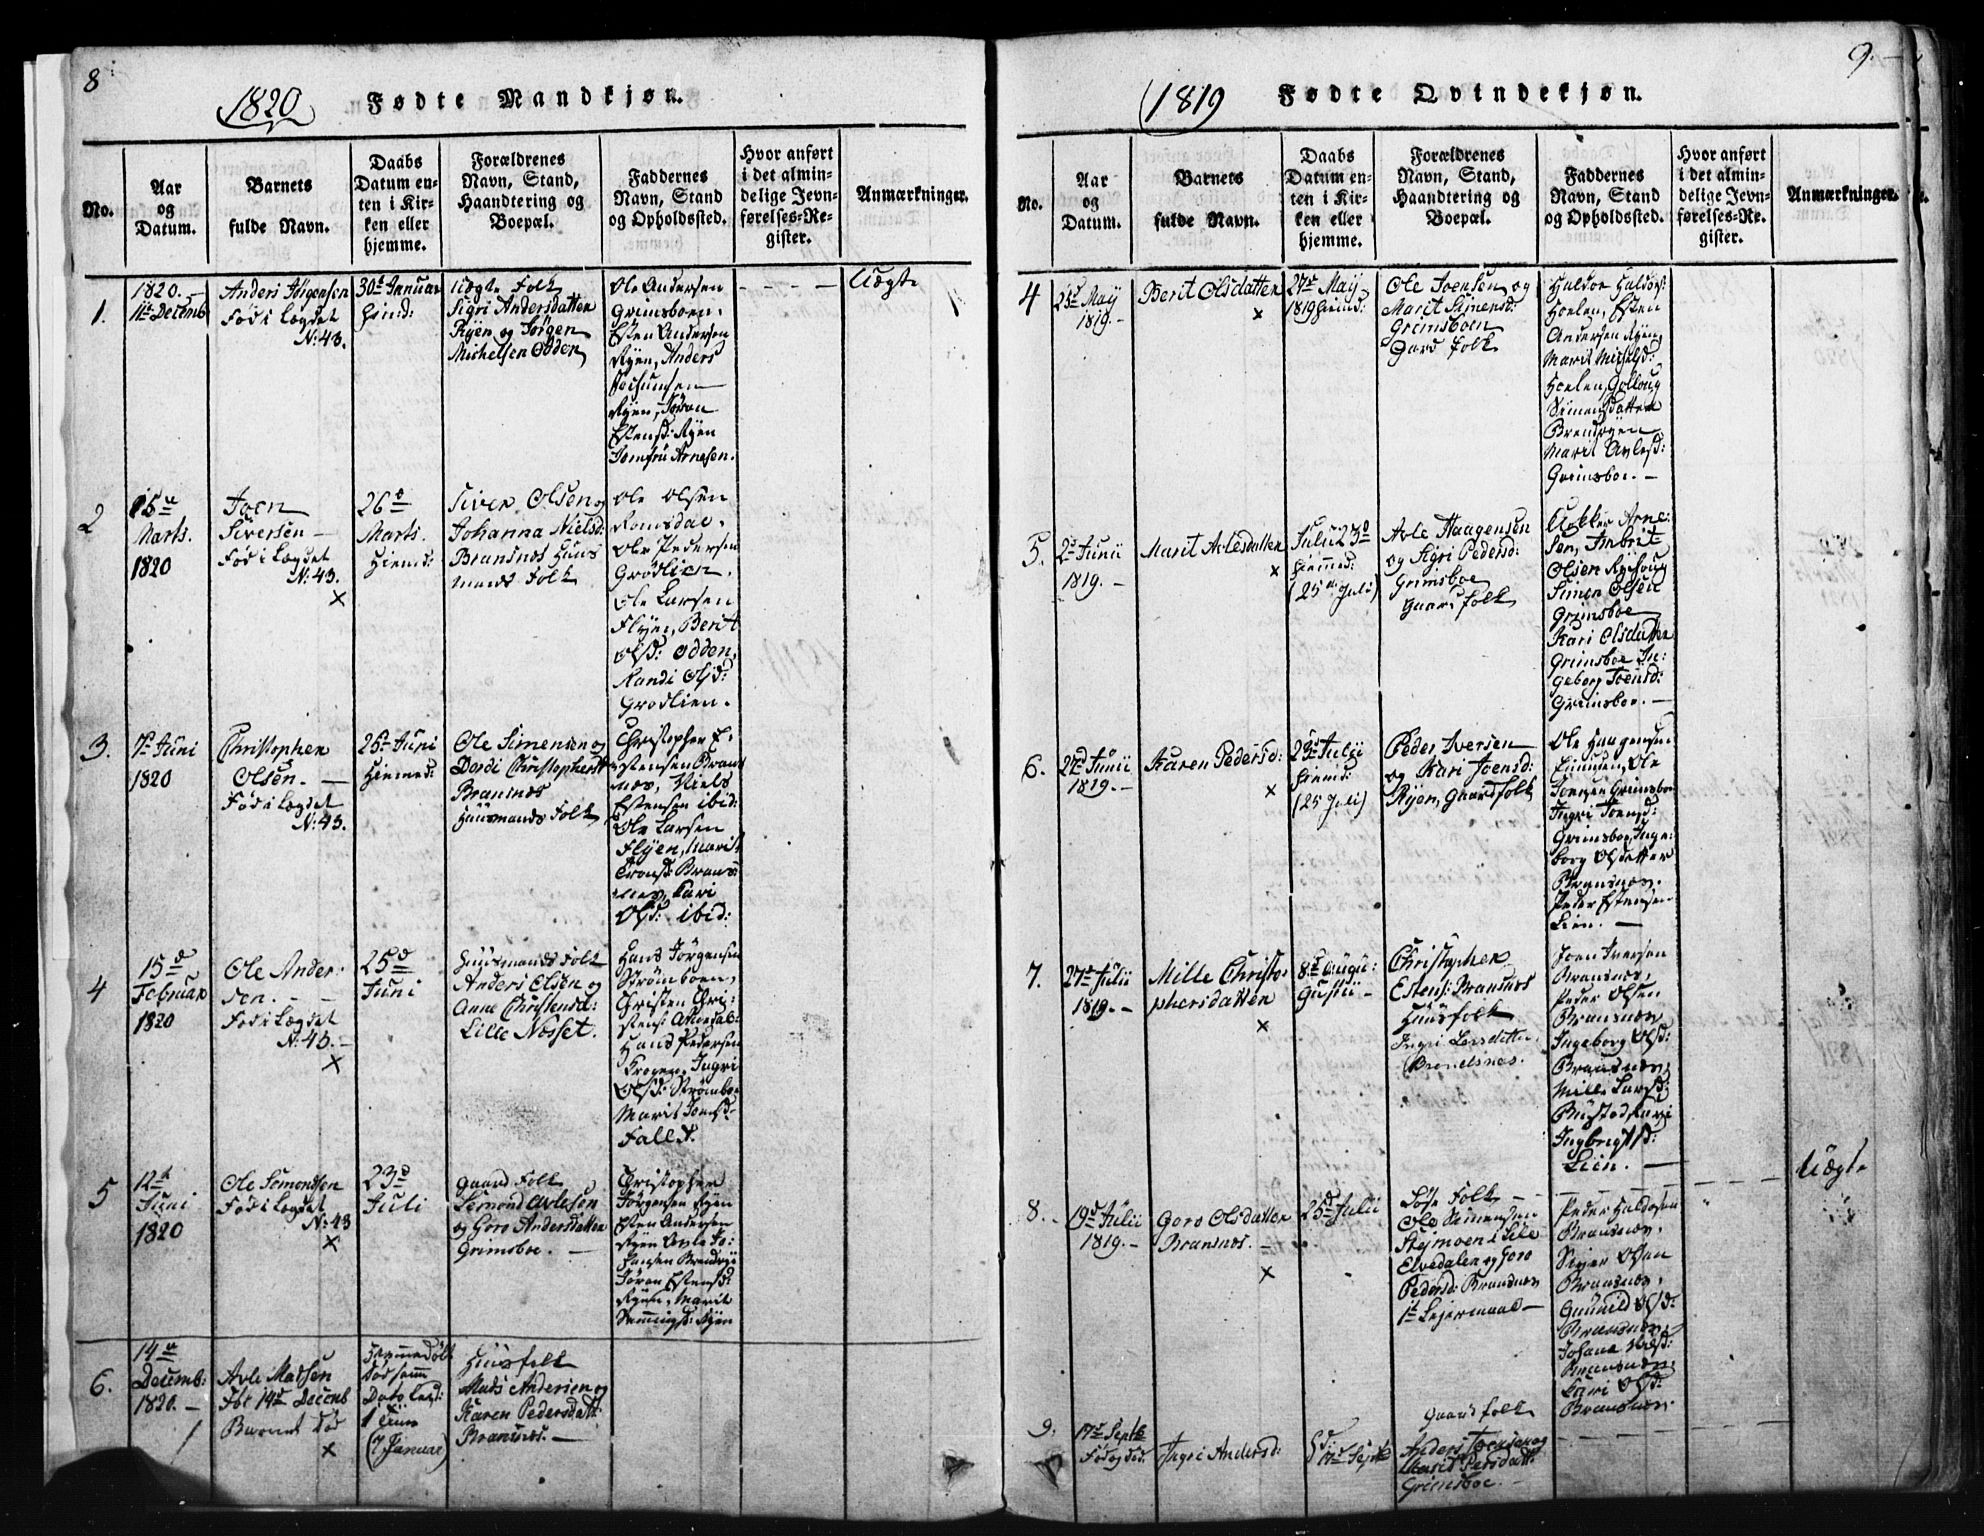 8
1820
Fødte Mandkjøn.
No.
Aar
og
Datum.
Barnets
fulde Navn.
Daabs
Datum en-
ten i Kir-
ken eller
hjemme.
Forældrenes
Navn, Stand,
Haandtering og
Boepæl.
Faddernes
Navn, Stand
og Opholdssted.
Hvor anført
i det almin-
delige Jevn-
førelses-Re-
gister.
Anmærkninger.
1.
1820. -
11te Decemb
Anders Jørgensen
Fød i Lægdet
N: 43.
30te Januar
Uægte Folk
Sigri Andersdatter
Ryen og Jørgen
Michelsen Odden
Ole Andersen
Grimsboen.
Esten Andersen
Ryen, Anders
Ryen, Jøran
Estensd: Ryen
Jomfru Arnesen.
Uægte
2
15de
Marts.
1820
Joen
Siversen -
Fød i Lægdet
N: 43.
x
26de
Marts.
Hiemd:
Siver Olsen og
Johanna Nielsd:
Bransnes Huus
mands Folk
Ole Olsen
Romsdal.
Ole Pedersen
Grødlien.
Ole Larsen
Flyen, Berit
Olsd: Odden.
Randi Olsd:
Grødlien.
3.
7de Juni
1820
Christopher
Olsen. -
Fød i Lægdet
N: 43.
25de Juni
Hiemed:
Ole Simensen og
Dordi Christophersd
Bransnes
Huusmands Folk
Christopher E-
stensen Brans
nes, Niels
Estensen ibid:
Ole Larsen
Flyen, Marit
Tronsd: Brans
nes, Kari
Olsd: ibid:
4
15de
Februar
1820
Ole Ander-
sen. -
Fød i Lægdet
N: 43. -
x
25de
Juni
Huusmands Folk
Anders Olsen og
Anne Christensd:
Lille Næsset.
Hans Jørgensen
Strømboen,
Christen Chri-
stens:
Hans Pedersen
Ingri
Olsd: Strømboe
Marit Joensd-
Fallet.
5
12te
Juni
1820
Ole Semondsen
Fød i Lægdet
N: 43
x
23de
Juli
Gaard Folk
Semond Avlesen
og Goro Andersdatter
Grimsboe. -
Christopher
Jørgensen Ryen
Esten Andersen
Ryen Avle Jo-
hansen
Jøran Estensd:
Ryen, Marit
Semmingsd: Ryen
6.
14de
Decemb:
1820. -
Avle Madsen
Fød 14de Decemb
Barnet død
x
Hiemmedøbt
(7 Januar)
Huusfolk
Mads Andersen og
Karen Pedersdatt:
Bransnes. -
9. -
1819
Fødte Qvindekjøn.
No.
Aar
og
Datum.
Barnets
fulde Navn.
Daabs
Datum en-
ten i Kir-
ken eller
hjemme.
Forældrenes
Navn, Stand,
Haandtering og
Boepæl.
Faddernes
Navn, Stand
og Opholdssted.
Hvor anført
i det almin-
delige Jevn-
førelses-Re-
gister.
Anmærkninger.
4
23de May
1819. -
Berit Olsdatter
x
27de May
1819 hiemd:
Ole Joensen og
Marit Simensd:
Grimsboen
Gard Folk
Haldor Haldors:
Hoelen, Esten
Andersen Ryen
Marit Michelsd:
Hoelen, Gollaug
Simensdatter
Marit Avlesd:
Grimsboe. -
5.
2de Junii
1819. -
Marit Avlesdatter
x
Julii 23de
hiemmed:
(25de Juli)
Avle Haagensen
og Sigri Pedersd:
Grimsboe
Gaard folk
Olsen
Simen Olsen
Grimsboe
Kari Olsdatter
Grimsboe In-
geborg Joensd:
Grimsboe. -
6.
27de Junii
1819. -
Karen Pedersd:
x
23de Julii
hiemd:
(25 Juli)
Peder Iversen
og Kari Joensd:
Ryen, Gaardfolk
Ole Haagensen
Ole
Joensen Grimsboe
Ingri Joensd:
Grimsboe, Inge-
borg Olsdatter
Bransnes.
Peder Estensen
Lien. -
7.
27de Julii
1819. -
Mille Christo-
phersdatter
x
8de Augu-
gustii -
Christopher
Estens: Bransnes
Huusfolk
Ingri Larsdatter
Brendsnes.
Joen Iversen
Bransnes,
Peder Olsen
Bransnes
Ingeborg Olsd:
Bransnes,
Mille Larsd:
Bustad, Kari
Ingbrigtsd:
Lien. -
8. -
19de Julii
1819. -
Goro Olsdatter
Bransnes. -
x
25de Julii
Løse Folk -
Ole Simensen
Stejmoen i Lile
Elvedalen og Goro
Pedersd: Bransnes
1te Lejermaal -
Peder Haldosen
Bransnes,
Siver Olsen
Bransnes,
Gunild Olsd:
Bransnes,
Johana Nielsd:
Bransnes,
Kari Olsd:
Bransnes.
Uægte
9.
17de Septb
Fød og død.
Ingri Andersd:
17de Septb
Gaard folk
Anders Joensen og
Marit Persdatt:
Grimsboe. -